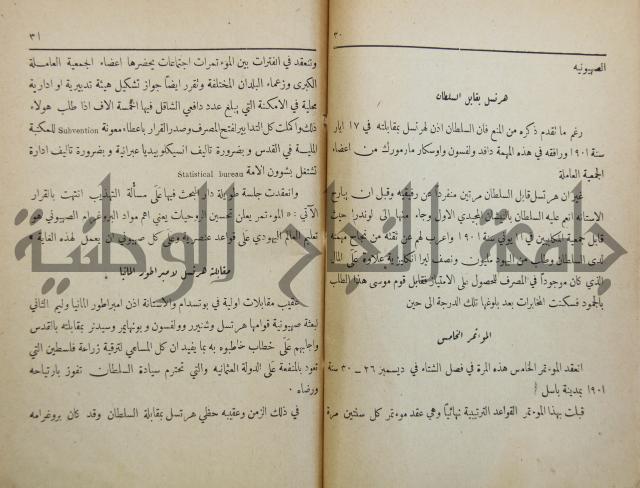 ٣٠
الصهيونيه
هرتسل يقابل السلطان
رغم ما تقدم ذكره من المنع فان السلطان اذن لهرتسل بمقابلته في ١٧ ايار
سنة ١٩٠١ ورافقه في هذه المهمة دافد ولفسون واوسكار مارمورك من اعضاء
الجمعية العاملة
غير ان هرتسل قابل السلطان مرتين منفرداً عن رفيقيه وقبل ان يبارح
الاستانه انعم عليه السلطان بالنيشان المجيدي الاول وجاء منها الى لوندرا حيث
قابل جمعية المكابيين في ١١ يوني سنة ١٩٠١ واعرب لهم عن ثقته من نجاح مهمته
لدى السلطان وطلب من اليهود مليون ونصف ليرا انكليزية علاوة على المال
الذي كان موجوداً في المصرف للحصول على الامتياز فقابل قوم موسى هذا الطلب
بالجمود فسكتت المخابرات بعد بلوغها تلك الدرجة الى حين
الموءتمر الخامس
انعقد الموءتمر الخامس هذه المرة في فصل الشتاء في ديسمبر ٢٦ – ٣٠ سنة
١٩٠١ بمدينة باسل
قبلت بهذا الموءتمر القواعد الترتيبية نهائياً وهي عقد موءتمر كل سنتين مرة
٣١
وتنعقد في الفترات بين الموءتمرات اجتماعات يحضرها اعضاء الجمعية العاملة
الكبرى وزعماء البلدان المختلفة وتقرر ايضاً جواز تشكيل هيئة تدبيرية او ادارية
محلية في الامكنة التي يبلغ عدد دافعي الشاقل فيها الخمسة الاف اذا طلب هولاء
ذلك واكملت كل التدابير لفتح المصرف وصدر القرار باعطاء معونة Subvention للمكتبة
الملية في القدس وبضرورة تاليف انسيكلوبيديا عبرانية وبضرورة تاليف ادارة
تشتغل بشوون الامة Statistical bureau
وانعقدت جلسة طويلة دار البحث فيها على مسألة التهذيب انتهت بالقرار
الآتي: « الموءتمر يعلن تحسين الروحيات يعني اهم مواد البروغرام الصهيوني هو
تعليم العالم اليهودي على قواعد عنصرية وعلى كل صهيوني ان يعمل لهذه الغاية »
مقابلة هرتسل لامبراطور المانيا
عقيب مقابلات اولية في بوتسدام والاستانة اذن امبراطور المانيا وليم الثاني
لبعثة صهيونية قوامها هرتسل وشنيرر وولفسون و بونهايمر وسيدنر بمقابلته بالقدس
واجابهم على خطاب خاطبوه به بما يفيد ان كل المساعي لترقية زراعة فلسطين التي
تعود بالمنفعة على الدولة العثمانيه والتي تحترم سيادة السلطان تفوز بارتياحه
ورضاء
في ذلك الزمن وعقيبه حظي هرتسل بمقابلة السلطان وقد كان بروغرامه
جامعة النجاح الوطنية